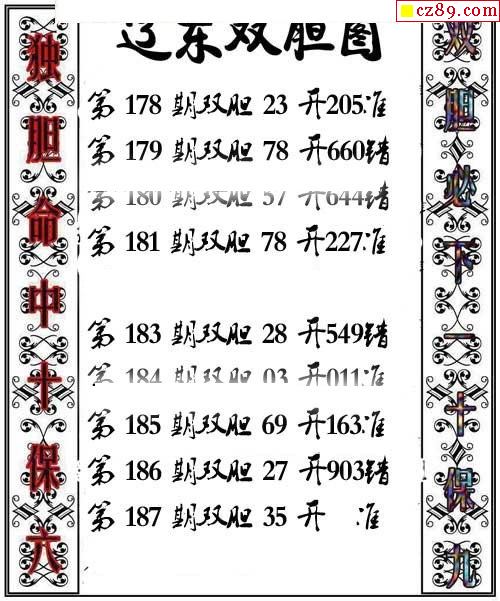 cz89.com
辽东双胆图
独胆命中十保六
第 178 期双胆 23 开205准
第 179 期双胆 78 开660错
第 180 期双胆 57 开644错
第 181 期双胆 78 开227准
第 183 期双胆 28 开549错
第 184 期双胆 03 开011准
第 185 期双胆 69 开163准
第 186 期双胆 27 开903错
第 187 期双胆 35 开 准
双胆必下一十保九